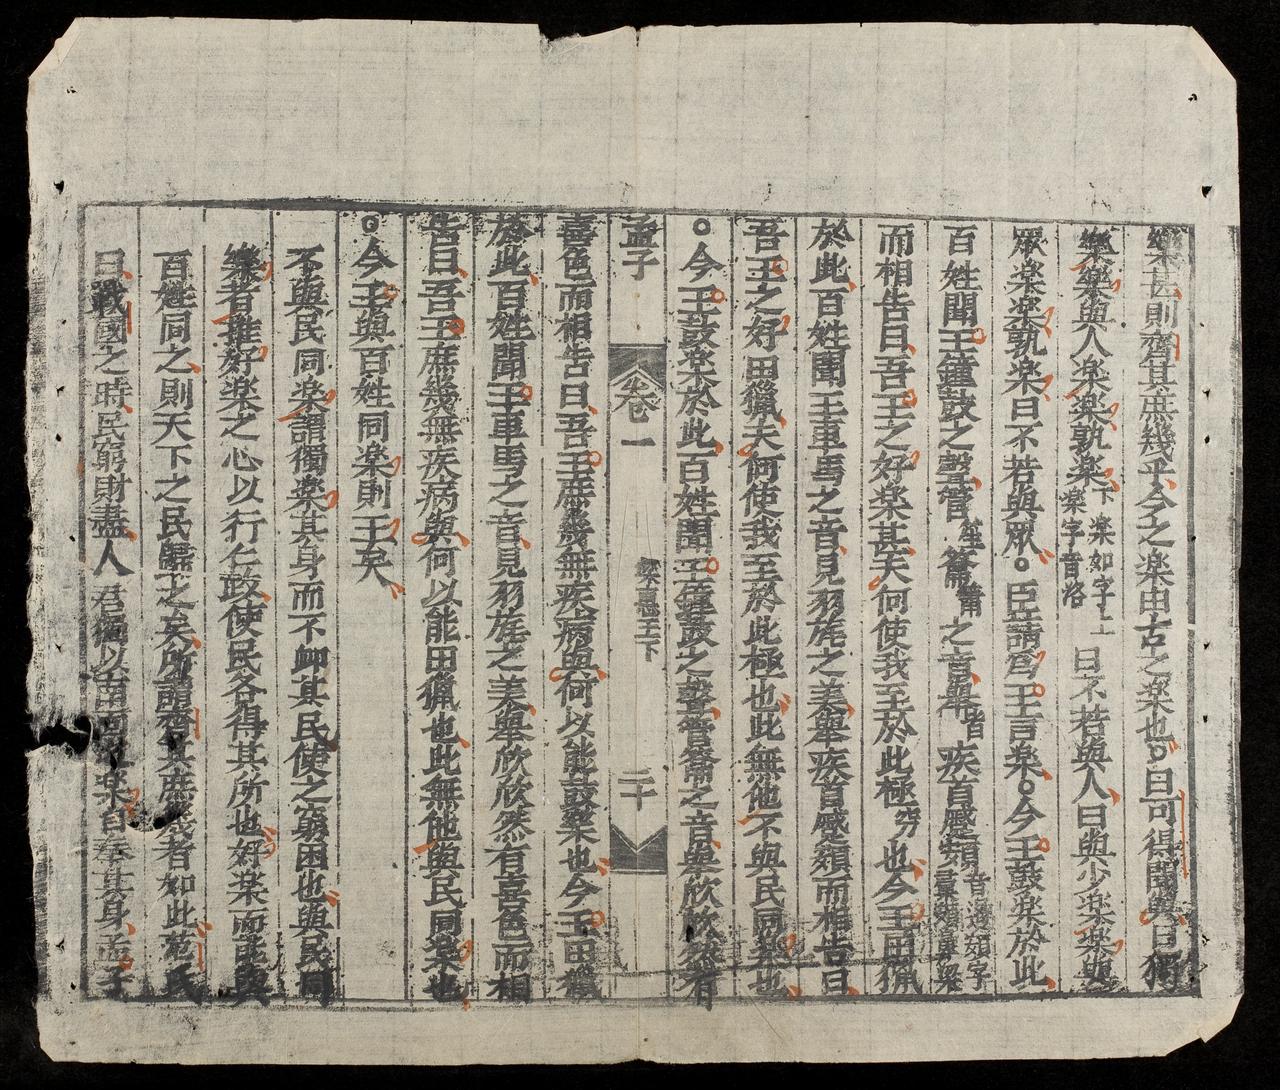 樂甚則齊其庶幾乎今之楽由古之楽也○曰可得聞與曰獨
樂樂與人楽楽孰楽下楽字音洛楽如字上曰不若與人曰與少楽楽與
眾楽楽孰楽曰不若與眾○臣請為王言楽○今王鼓楽於此
百姓聞王鐘鼓之聲管笙籥簫之音舉皆疾首蹙頞音遏頞字
而相告曰吾王之好楽甚夫何使我至於此極窮也今王田猟
於此百姓聞王車馬之音見羽旄之美舉疾首蹙頞而相告曰
吾王之好田獵夫何使我至於此極也此無他不與民同楽也
○今王鼓楽於此百姓聞王鐘鼓之聲管籥之音舉欣欣然有
孟子
卷一
梁惠王下
二十
喜色而相告曰吾王庶幾無疾病與何以能鼓樂也今王田獵
於此百姓聞王車馬之音見羽旄之美舉欣欣然有喜色而相
告曰吾王庶幾無疾病與何以能田獵也此無他與民同楽也
○今王與百姓同楽則王矣
不與民同楽謂獨楽其身而不卹其民使之窮困也與民同
樂者推好楽之心以行仁政使民各得其所也好楽而能與
百姓同之則天下之民歸之矣所謂齊其庶幾者如此范氏
曰戰國之時民窮財盡人君獨以南面之楽自奉其身孟子